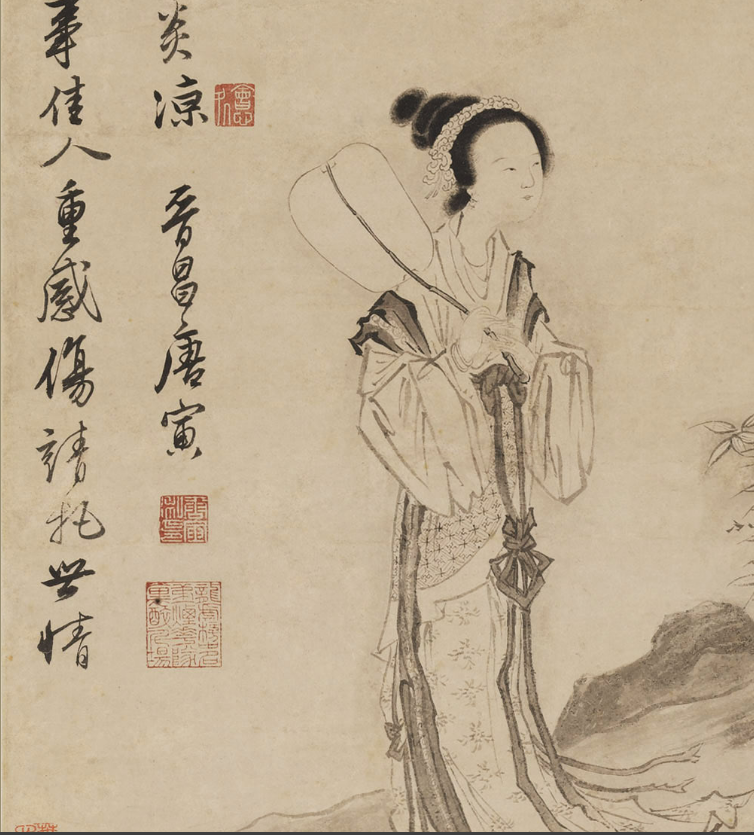 事佳人重感傷請托世情
炎涼
晉昌唐寅